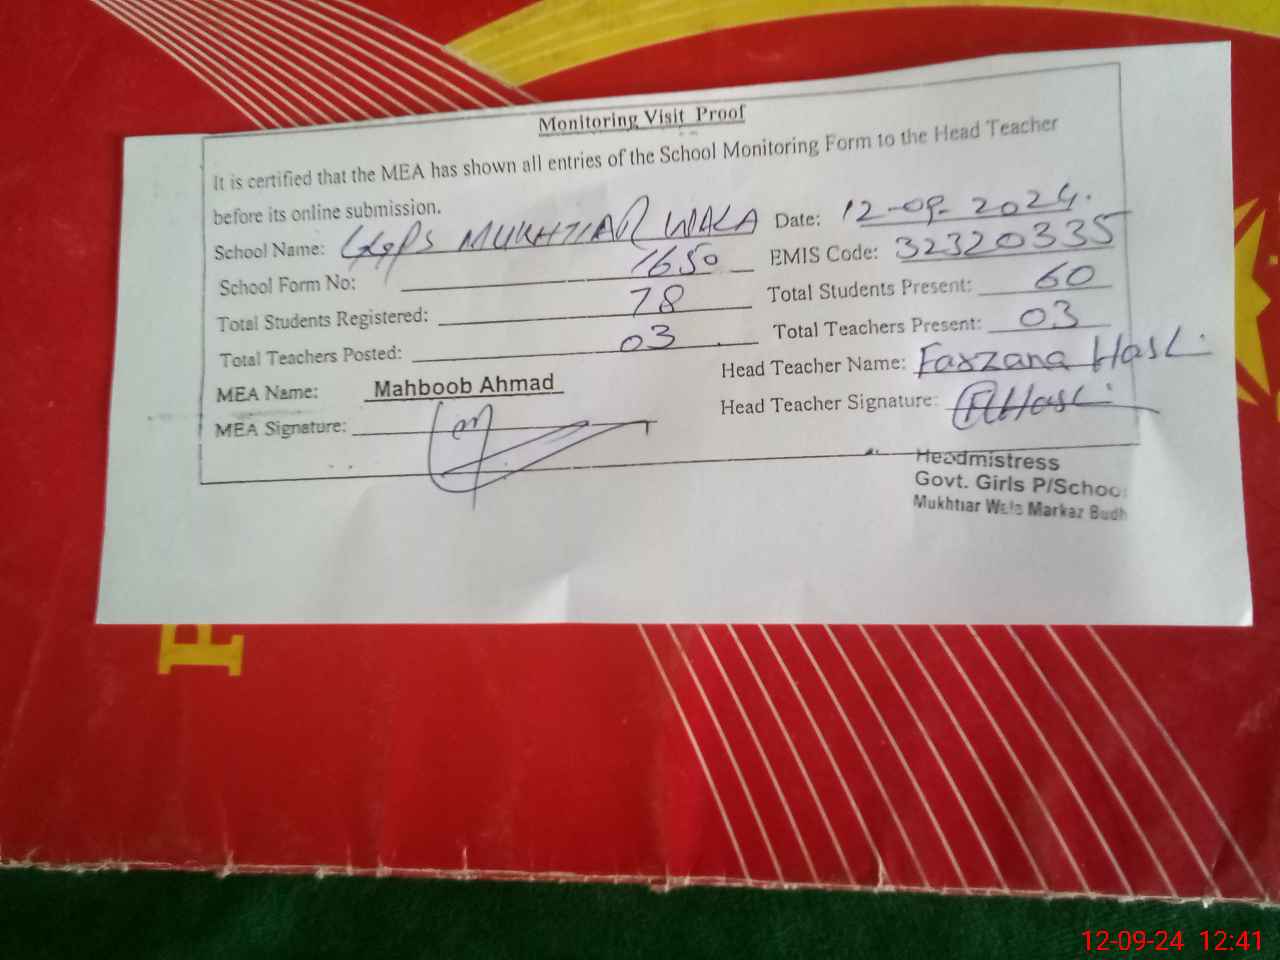 Monitoring Visit Proof
It is certified that the MEA has shown all entries of the School Monitoring Form to the Head Teacher
before its online submission.
School Name: GGPS MUKHTIAR WALA Date: 12-09-2024.
School Form No: 1650 EMIS Code: 32320335
Total Students Registered: 78 Total Students Present: 60
Total Teachers Posted: 03 Total Teachers Present: 03
MEA Name: Mahboob Ahmad Head Teacher Name: Farzana
MEA Signature: Head Teacher Signature:
Headmistress
Govt. Girls P/School
Mukhtiar Wala Markaz Budh
12-09-24 12:41